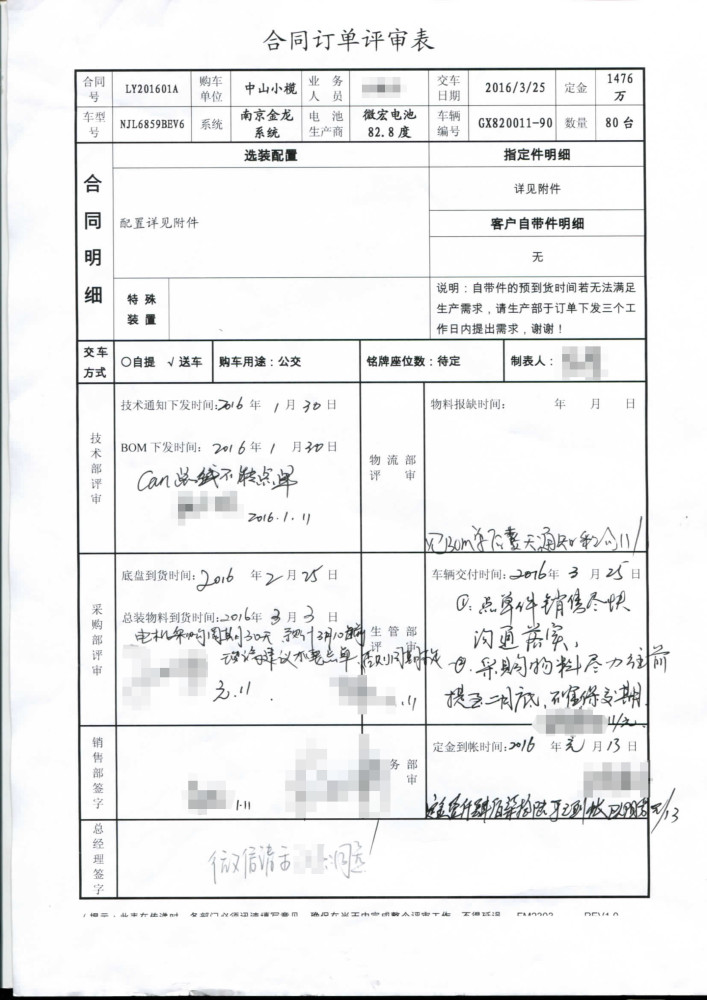 合同订单评审表
合同号 LY201601A 购车单位 中山小榄 业务人员 交车日期 2016/3/25 定金 1476万
车型号 NJL6859BEV6 系统 南京金龙系统 电池生产商 微宏电池82.8度 车辆编号 GX820011-90 数量 80台
合同明细
选装配置
指定件明细
详见附件
配置详见附件
客户自带件明细
无
特殊装置
说明：自带件的预到货时间若无法满足
生产需求，请生产部于订单下发三个工
作日内提出需求，谢谢！
交车方式 〇自提 √送车 购车用途：公交 铭牌座位数：待定 制表人：
技术部评审
技术通知下发时间：2016年1月30日
BOM下发时间：2016年1月30日
Can总线不能点单
2016.1.11
物流部评审
物料报缺时间： 年 月 日
采购部评审
底盘到货时间：2016年2月25日
总装物料到货时间：2016年3月3日
电机采购周期30天
建议不要点单
元.11
生管部评审
.11
车辆交付时间：2016年3月25日
①：点单件销售尽快
沟通落实，
②.采购物料尽力往前
提至二月底，不确保交期
11/元
销售部签字
1.11
务部审
定金到帐时间：2016年元月13日
元/13
总经理签字
微信请示 同意